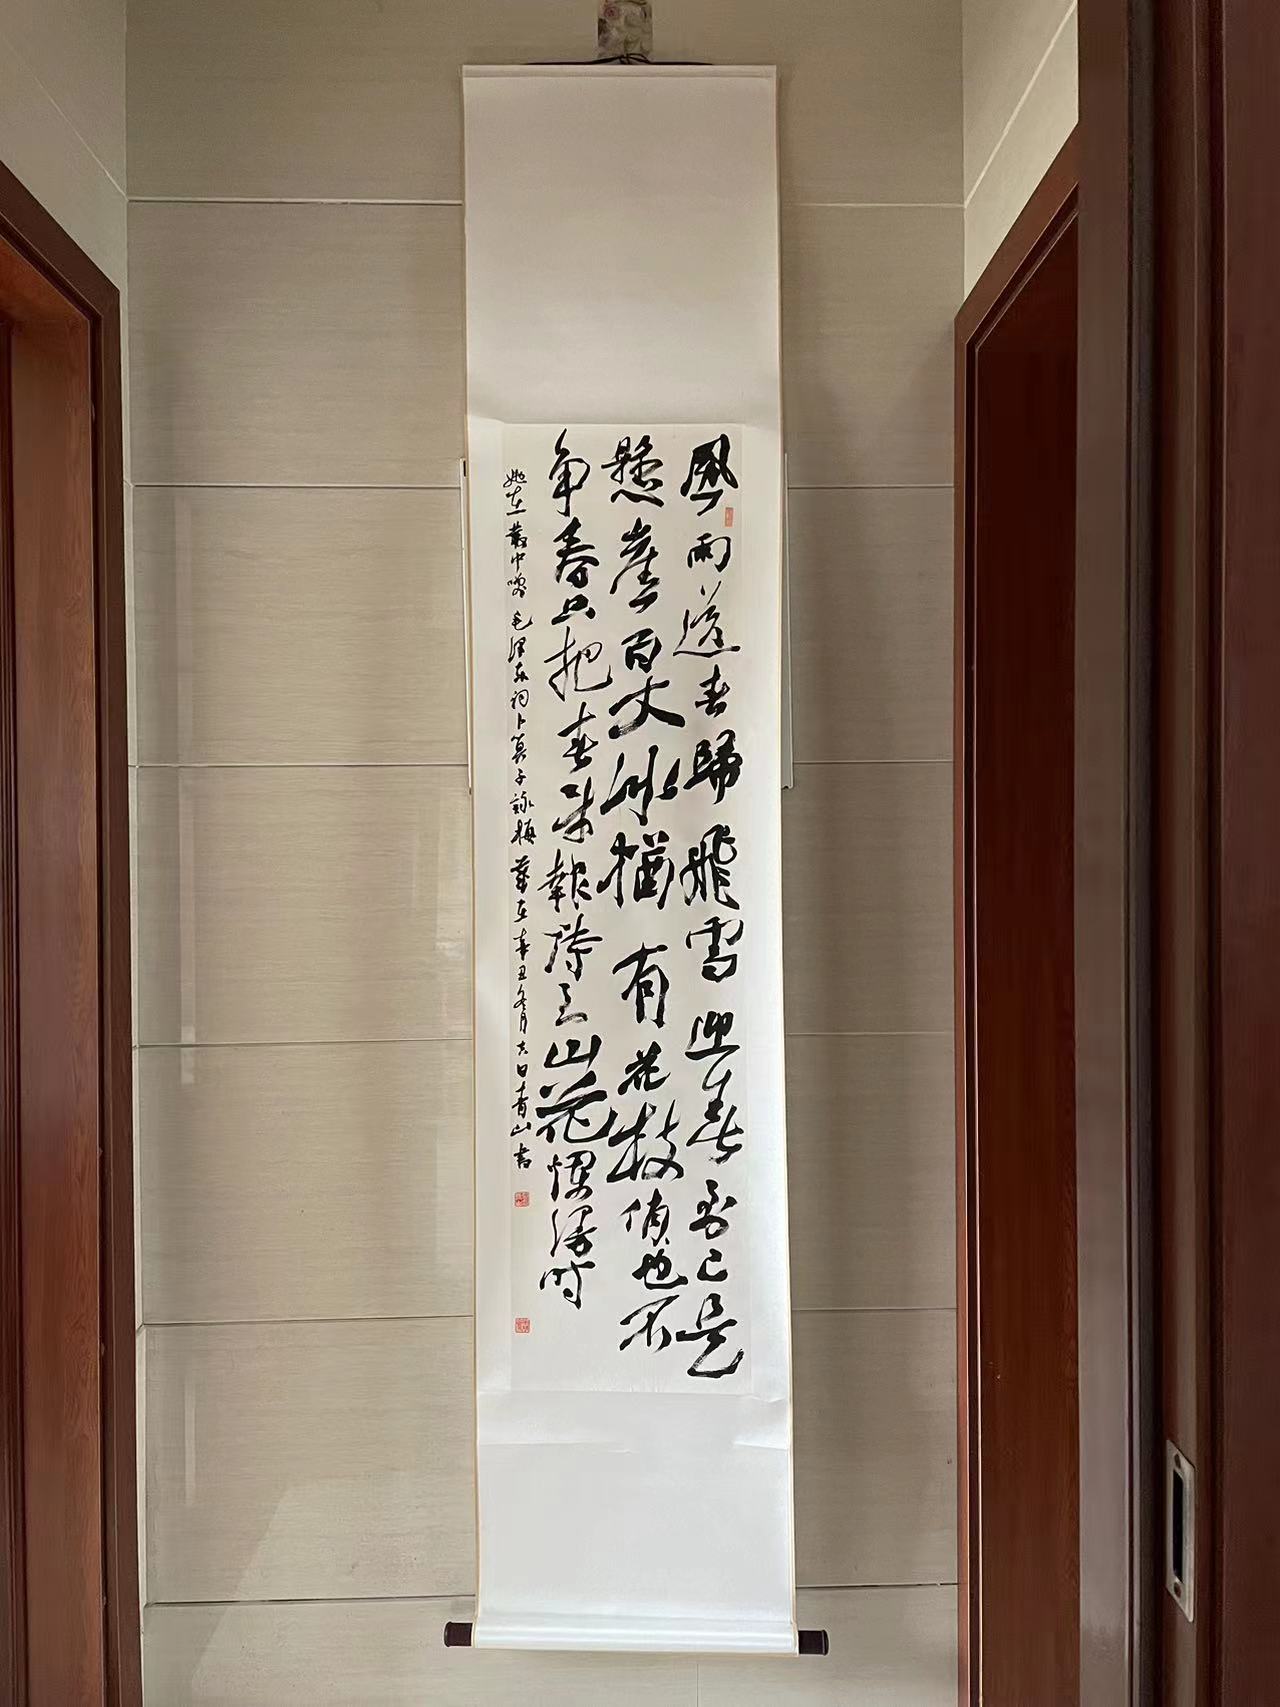 風雨送春歸飛雪迎春到已是
懸崖百丈冰猶有花枝俏也不
争春只把春来報待到山花爛漫时
她在叢中咲 毛澤东词卜算子詠梅 歲在辛丑冬月六日青山書